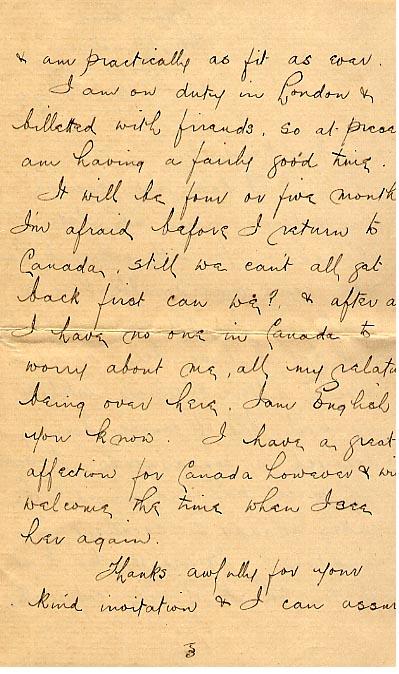 & am practically as fit as ever.
I am on duty in London &
billetted with friends, so at prese
am having a fairly good time.
It will be four or five month
I'm afraid before I return to
Canada, still we can't all get
back first can we?, & after a
I have no one in Canada to
worry about me, all my relati
being over here, I am English
you know. I have a great
affection for Canada however & wi
welcome the time when I see
her again.
Thanks awfully for your
kind invitation & I can assur
3